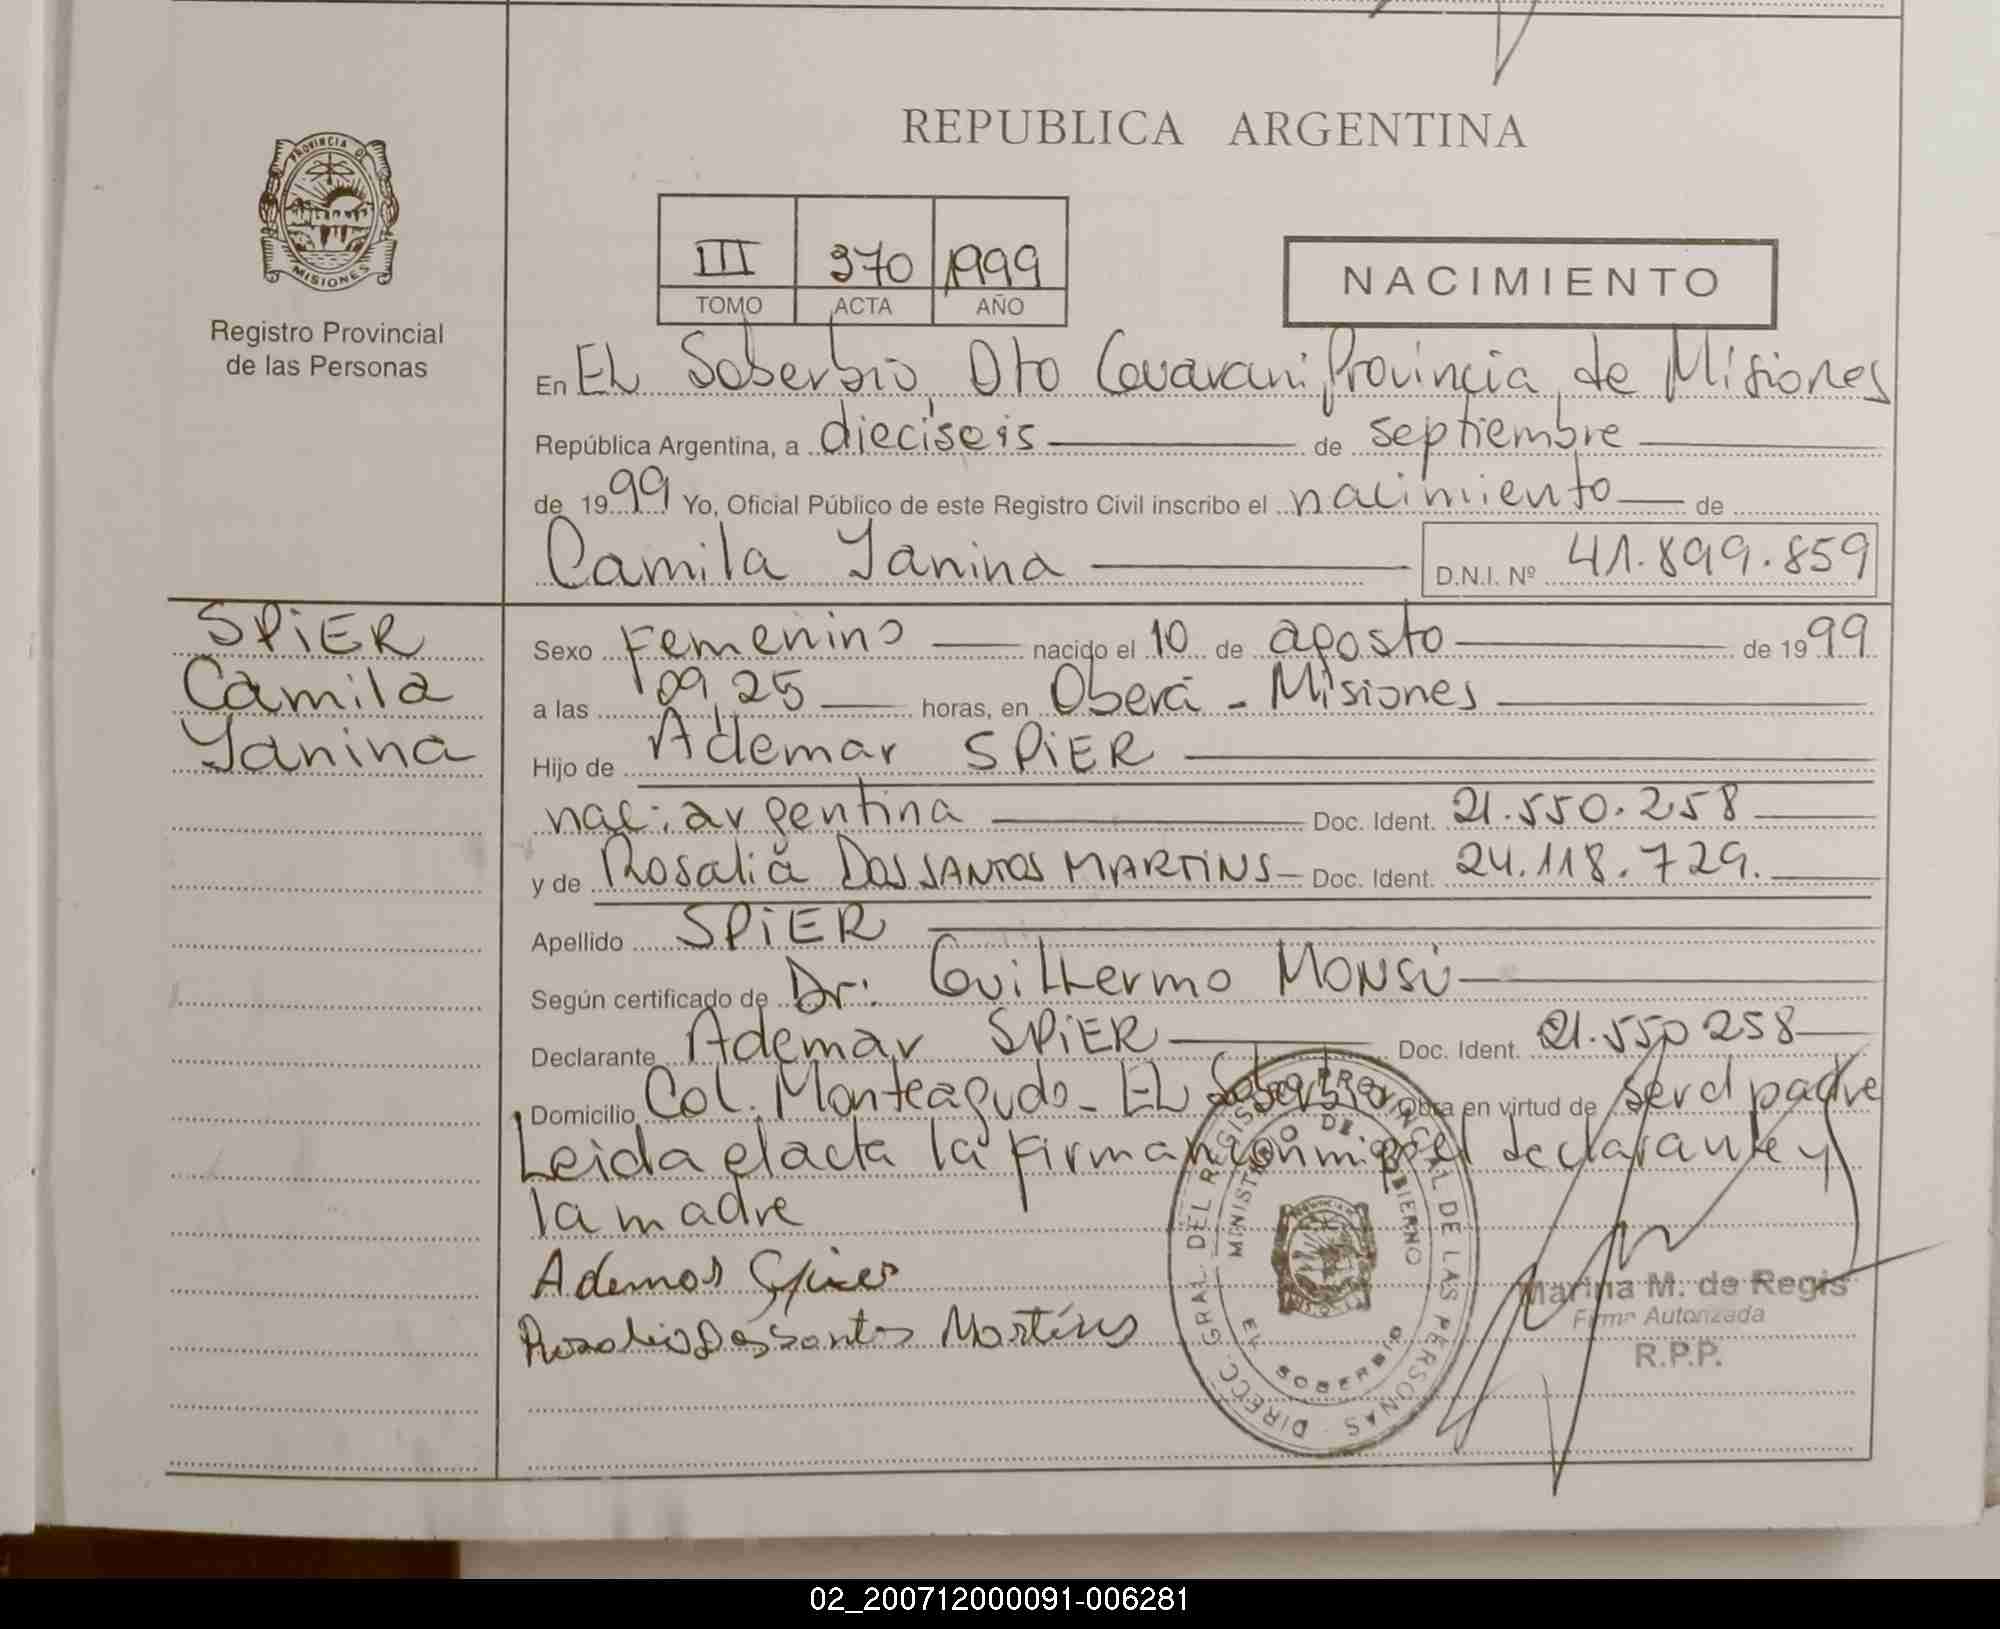 REPUBLICA ARGENTINA
PROVINCIA DE
MISIONES
Registro Provincial
de las Personas
III 370 1999
TOMO ACTA AÑO
NACIMIENTO
En EL Soberbio, Dto Guarani Provincia de Misiones
República Argentina, a dieciseis de septiembre
de 1999 Yo, Oficial Público de este Registro Civil inscribo el nacimiento de
Camila Yanina D.N.I. Nº 41.899.859
SPiER
Camila
Yanina
Sexo Femenino nacido el 10 de agosto de 1999
a las 09,25 horas, en Oberá - Misiones
Hijo de Ademar SPiER
nac: argentina Doc. Ident. 21.550.258
y de Rosalia DOS SANTOS MARTiNS Doc. Ident. 24.118.729.
Apellido SPiER
Según certificado de Dr: Guillermo MONSÚ
Declarante Ademar SPiER Doc. Ident. 21.550 258
Domicilio Col. Monteagudo - EL Soberbio Obra en virtud de ser el padre
Leida el acta la firman conmigo el declarante y
la madre
Ademar Spier
Rosalia Dos Santos Martins
DIRECC. GRAL. DEL REGISTRO PROVINCIAL DE LAS PERSONAS
MINISTERIO DE GOBIERNO
EL SOBERBIO
Marina M. de Regis
Firma Autorizada
R.P.P.
02_200712000091-006281